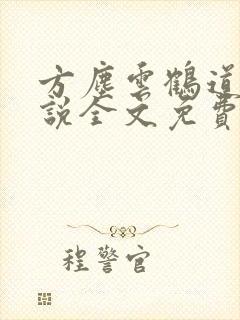 方塵雲鶴道
說全文免費
程警官